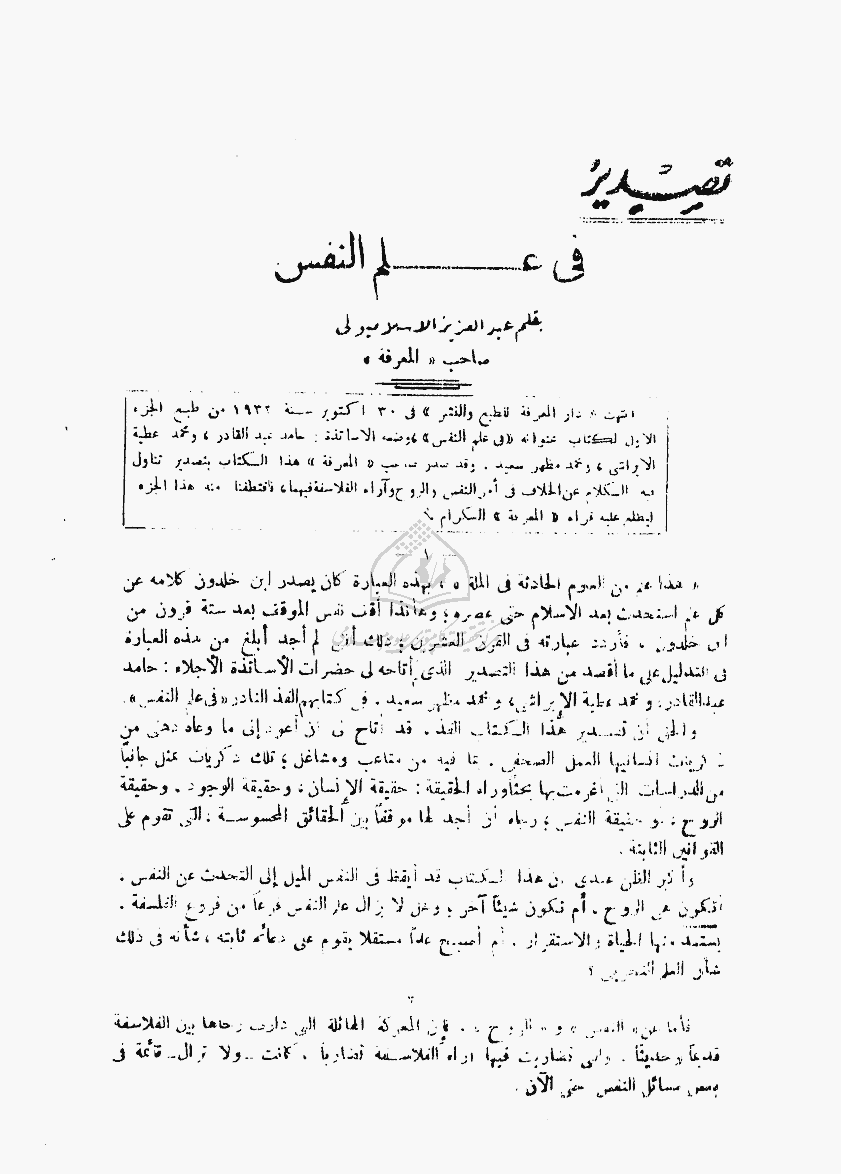 تصدير
فى علم النفس
بقلم عبد العزيز الاسلامبولى
صاحب « المعرفة »
انتهت « دار المعرفة للطبع والنشر » فى ٣٠ اكتوبر سنة ١٩٣٢ من طبع الجزء
الأول لكتاب عنوانه « فى علم النفس » ، وضعه الاساتذة : حامد عبد القادر ، ومحمد عطية
الابراشى ، ومحمد مظهر سعيد . وقد صدر صاحب « المعرفة » هذا الكتاب بتصدير تناول
فيه الكلام عن الخلاف فى أمر النفس والروح وآراء الفلاسفة فيهما ، فاقتطفنا منه هذا الجزء
ليطلع عليه قراء « المعرفة » الكرام
— ١ —
« هذا علم من العلوم الحادثة فى الملة » ، بهذه العبارة كان يصدر ابن خلدون كلامه عن
كل علم استحدث بعد الاسلام حتى عصره ؛ وهأنذا أقف نفس الموقف بعد ستة قرون من
ابن خلدون ، فأردد عبارته فى القرن العشرين ؛ ذلك أننى لم أجد أبلغ من هذه العبارة
فى التدليل على ما أقصد من هذا التصدير الذى أتاحه لى حضرات الأساتذة الأجلاء : حامد
عبد القادر ، ومحمد عطية الإبراشى ، ومحمد مظهر سعيد . فى كتابهم الفذ النادر « فى علم النفس » .
والحق أن تصدير هذا الكتاب الفذ . قد أتاح لى أن أعود إلى ما وعاه ذهنى من
ذكريات أنسانيها العمل الصحفى . بما فيه من متاعب ومشاغل ؛ تلك ذكريات تمثل جانباً
من الدراسات التى أغرمت بها بحثاً وراء الحقيقة : حقيقة الإنسان ، وحقيقة الوجود . وحقيقة
الروح ، وحقيقة النفس ؛ رجاء أن أجد لها موقفاً بين الحقائق المحسوسة . التى تقوم على
القوانين الثابتة .
وأكبر الظن عندى أن هذا الكتاب قد أيقظ فى النفس الميل إلى التحدث عن النفس .
أتكون هى الروح . أم تكون شيئاً آخر ؛ وهل لا يزال علم النفس فرعاً من فروع الفلسفة .
يستمد منها الحياة والاستقرار . أم أصبح علماً مستقلا يقوم على دعائم ثابته ، شأنه فى ذلك
شأن العلم التجريبى ؟
٢
فأما عن « النفس » و « الروح » . فإن المعركة الهائلة التى دارت رحاها بين الفلاسفة
قديماً وحديثاً . والتى تضاربت فيها آراء الفلاسفة تضارباً ، كانت - ولا تزال - قائمة فى
بعض مسائل النفس حتى الآن .